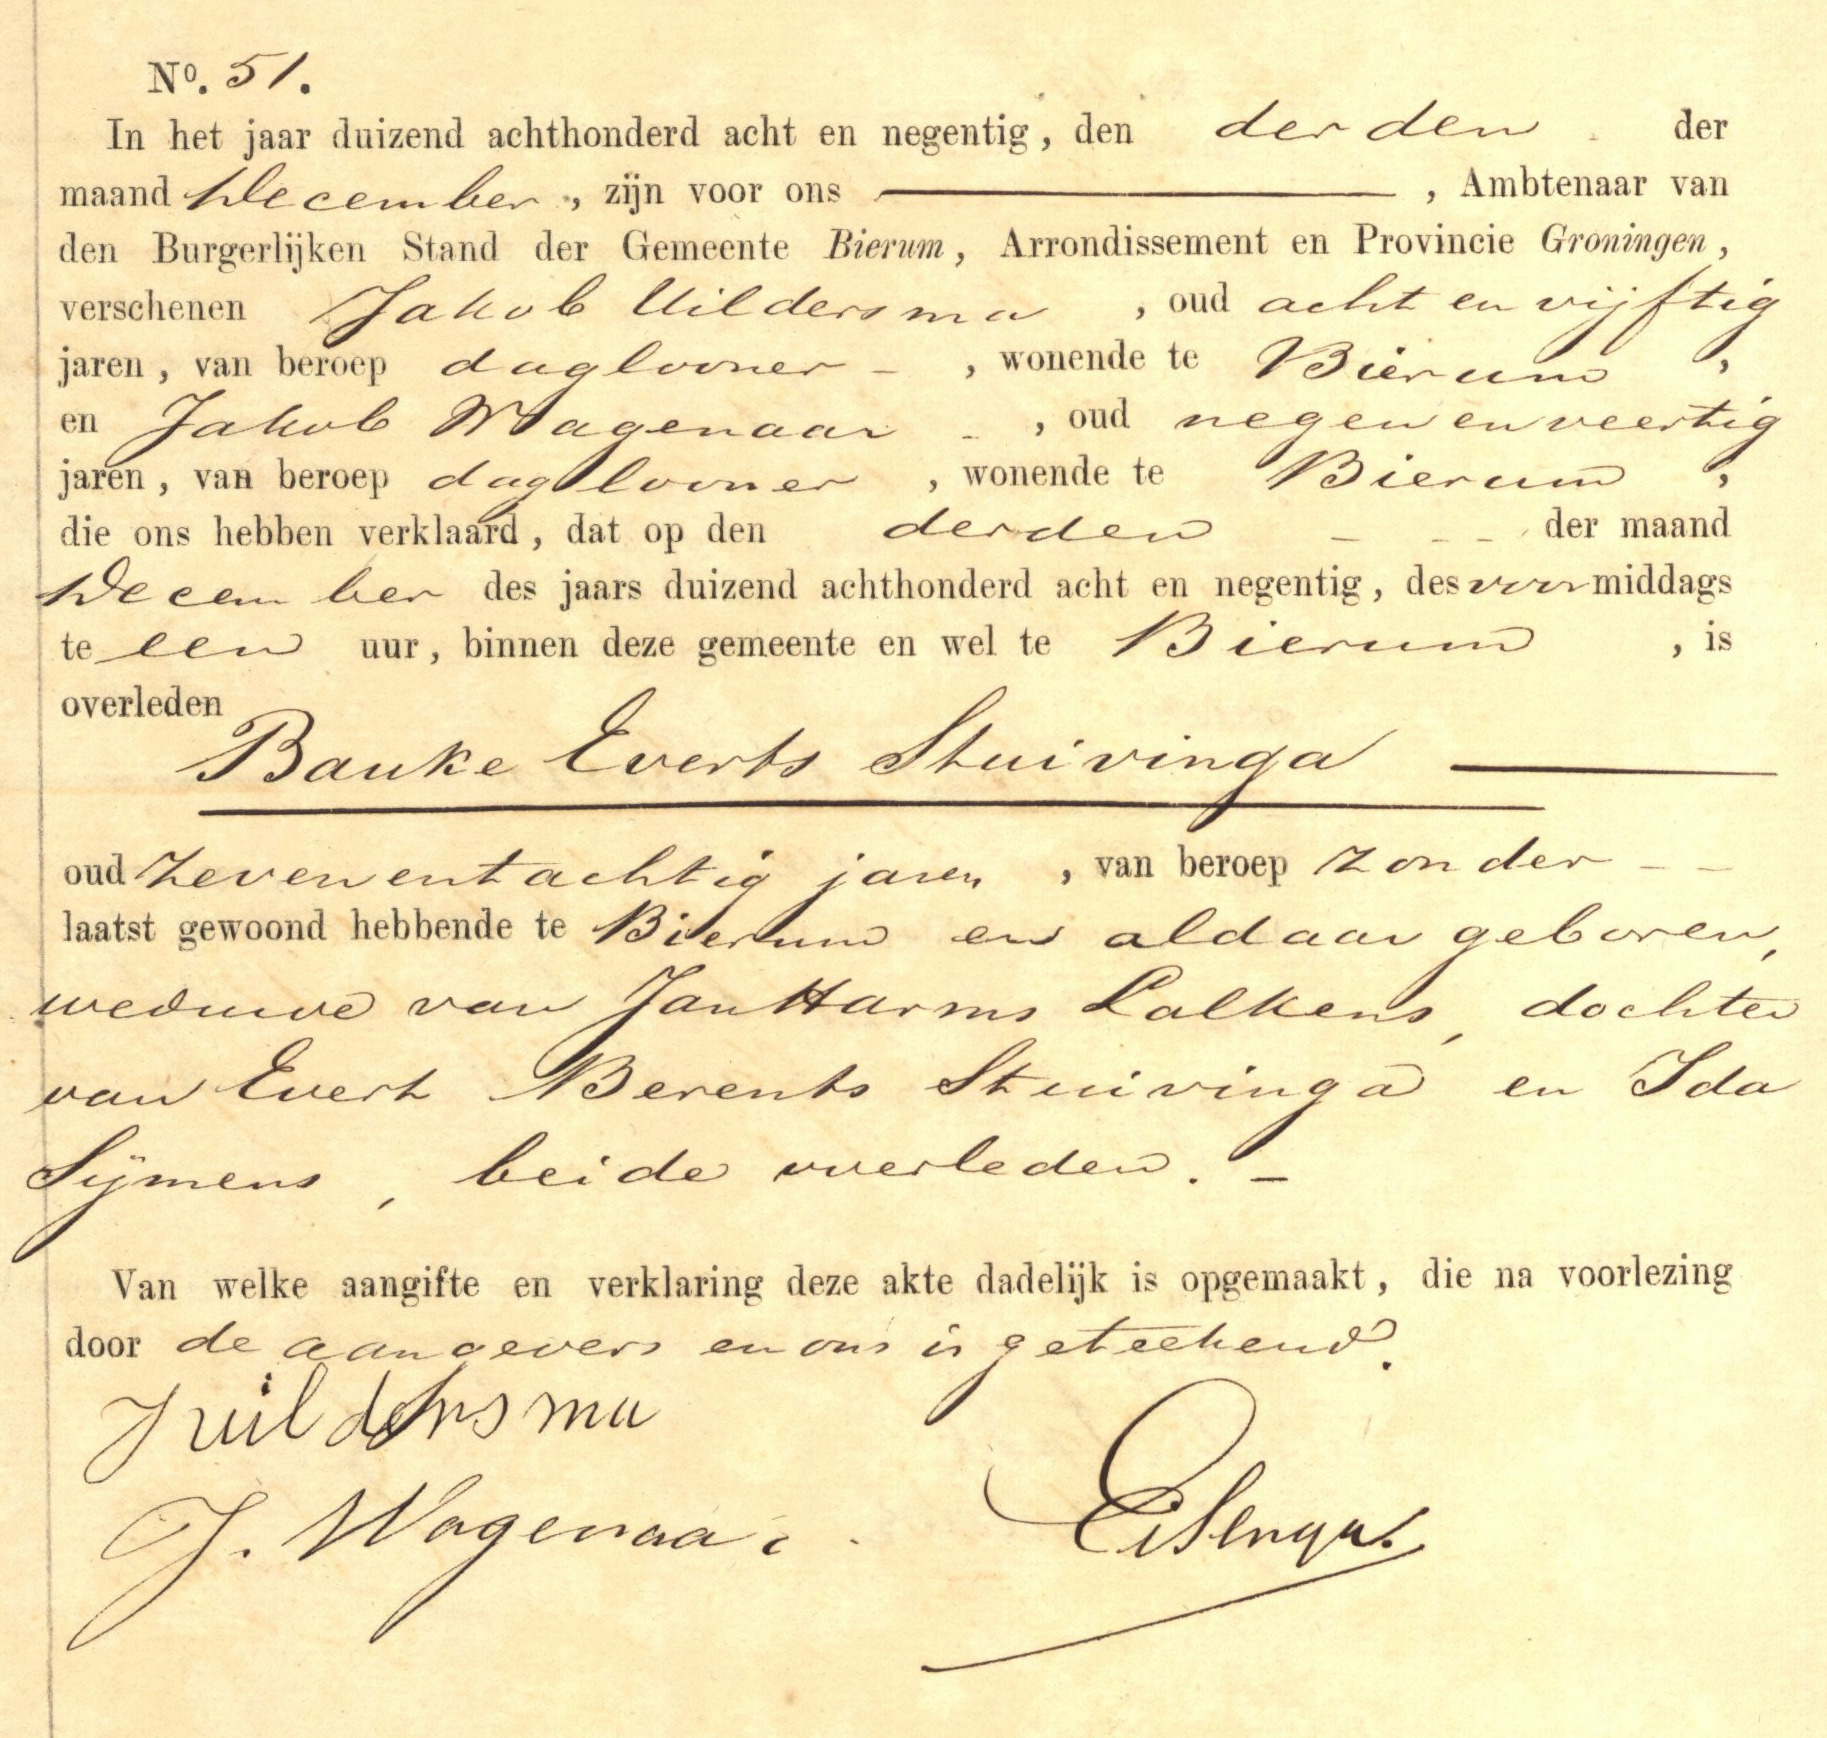 No. 51.
In het jaar duizend achthonderd acht en negentig, den derden der
maand December, zijn voor ons , Ambtenaar van
den Burgerlijken Stand der Gemeente Bierum, Arrondissement en Provincie Groningen,
verschenen Jakob Uildersma , oud acht en vijftig
jaren, van beroep daglooner - , wonende te Bierum ,
en Jakob Wagenaar - , oud negen en veertig
jaren, van beroep daglooner , wonende te Bierum ,
die ons hebben verklaard, dat op den derden - - - der maand
December des jaars duizend achthonderd acht en negentig, des voormiddags
te een uur, binnen deze gemeente en wel te Bierum , is
overleden
Bauke Everts Stuivinga
oud zeven en tachtig jaren , van beroep zonder - -
laatst gewoond hebbende te Bierum en aldaar geboren,
weduwe van Jan Harms Lalkens, dochter
van Evert Berents Stuivinga en Ida
Sijmens, beide overleden. -
Van welke aangifte en verklaring deze akte dadelijk is opgemaakt, die na voorlezing
door de aangevers en ons is geteekend.
J uildersma
J. Wagenaar.